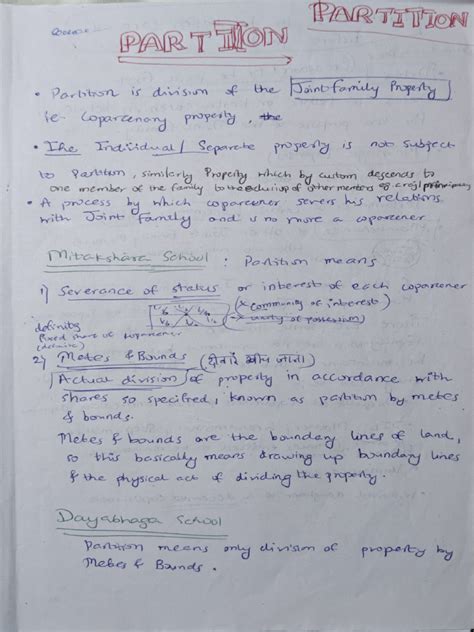 PARTITION
PARTITION
• Partition is division of the Joint Family Property
ie- Coparcenary property, the
• The Individual/ Separate property is not subject
to Partition, similarly Property which by custom descends to
one member of the family to the of other members eg.
• A process by which coparcener severs his relations
with Joint Family and is no more a coparcener
Mitakshara School : Partition means
1) Severance of status or interest of each coparcener
(x community of interests)
(x unity of possession)
definite
fixed share of coparcener
(defined)
2) Metes & Bounds (दीवारें खींच जाना)
Actual division of property in accordance with
shares so specified, known as partition by metes
& bounds.
Metes & bounds are the boundary lines of land,
so this basically means drawing up boundary lines
& the physical act of dividing the property.
Dayabhaga School
Partition means only division of property by
Metes & Bounds.